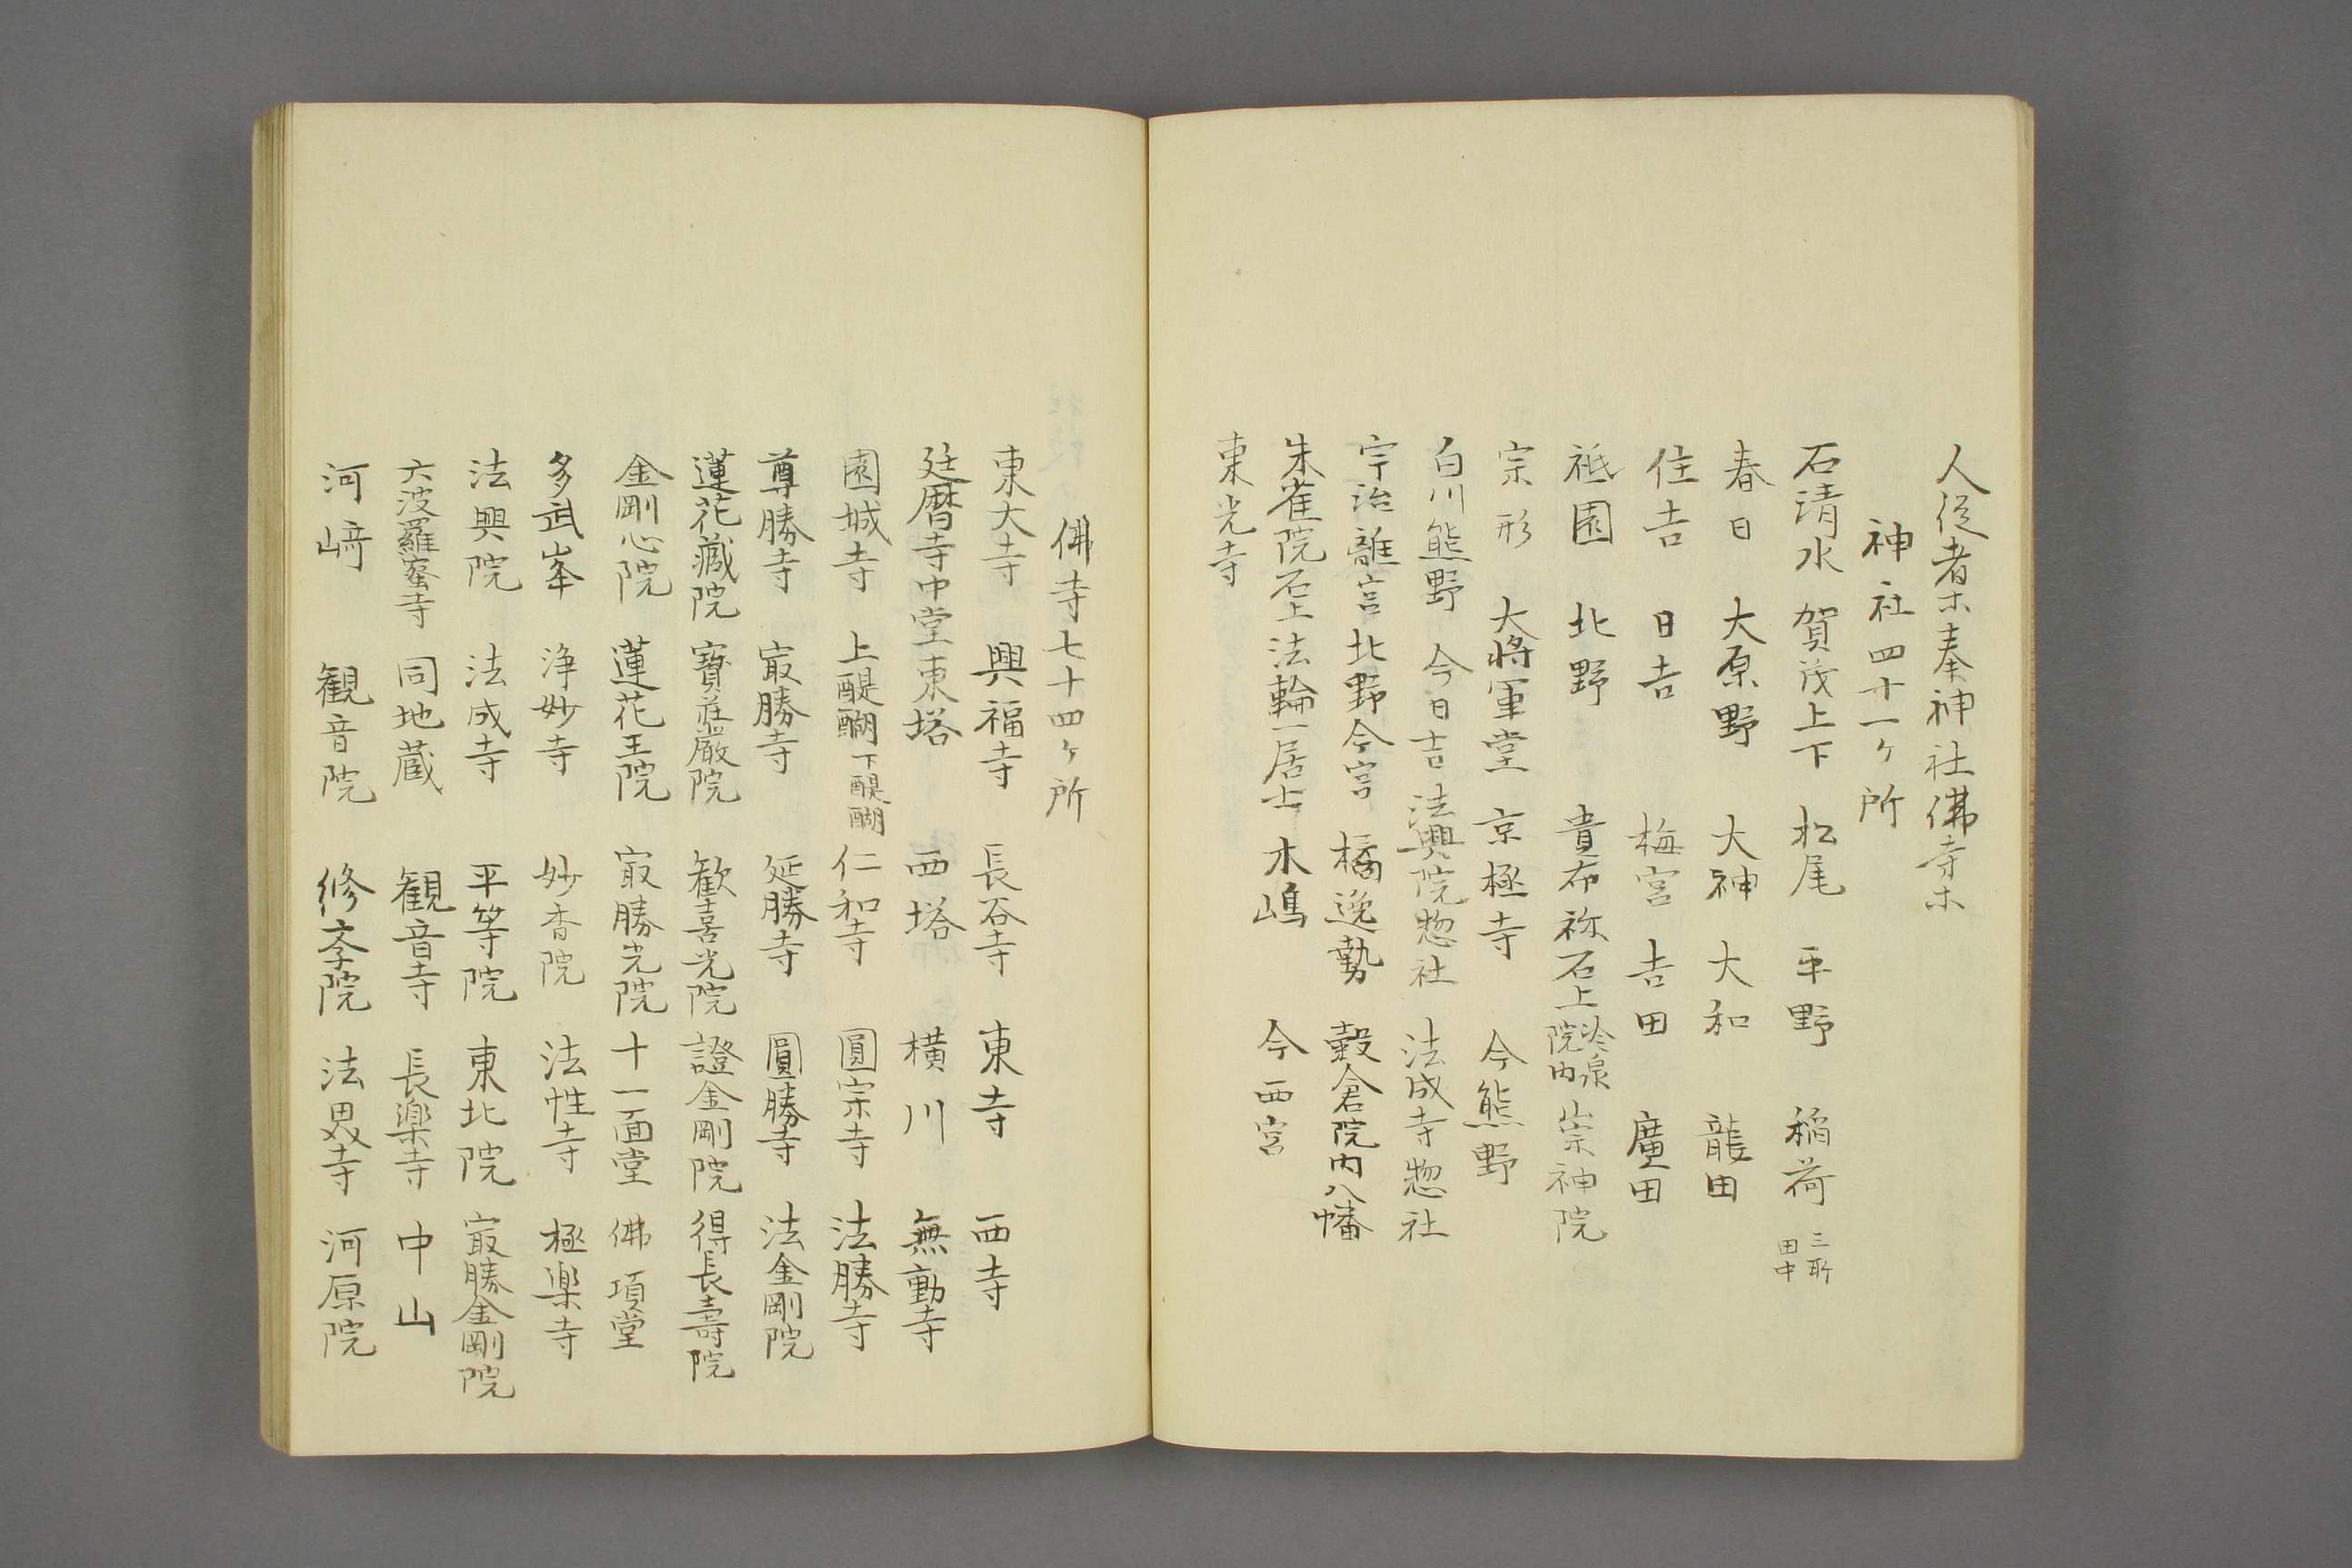 人従者ホ奉神社佛寺ホ
神社四十一ヶ所
石清水 賀茂上下 松尾 平野 稲荷 三所田中
春日 大原野 大神 大和 龍田
住吉 日吉 梅宮 吉田 廣田
祇園 北野 貴布祢 石上 冷泉院内 崇神院
宗形 大将軍堂 京極寺 今熊野
白川熊野 今日吉 法興院惣社 法成寺惣社
宇治離宮 北野今宮 橘逸勢 穀倉院内八幡
朱雀院石上 法輪一居士 木嶋 今西宮
東光寺
佛寺七十四ヶ所
東大寺 興福寺 長谷寺 東寺 西寺
延暦寺中堂 東塔 西塔 横川 無動寺
園城寺 上醍醐 下醍醐 仁和寺 圓宗寺 法勝寺
尊勝寺 㝡勝寺 延勝寺 圓勝寺 法金剛院
蓮花蔵院 寶荘嚴院 歓喜光院 證金剛院 得長壽院
金剛心院 蓮花王院 㝡勝光院 十一面堂 佛項堂
多武峯 浄妙寺 妙香院 法性寺 極楽寺
法興院 法成寺 平等院 東北院 㝡勝金剛院
六波羅蜜寺 同地蔵 観音寺 長楽寺 中山
河﨑 観音院 修斈院 法恩寺 河原院